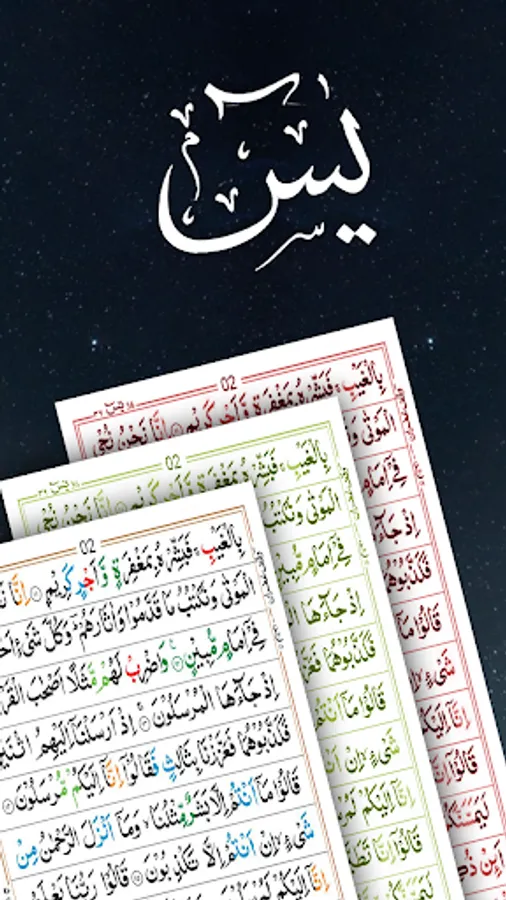 يٰسٓ
02
بِالْغَيْبِ ۚ فَبَشِّرْهُ بِمَغْفِرَةٍ وَّاَجْرٍ كَرِيْمٍ ۝ اِنَّا نَحْنُ نُحْيِ
الْمَوْتٰى
فِيْٓ اِمَامٍ
اِذْ جَآءَ
فَكَذَّبُوْهُمَا
قَالُوْا مَآ
شَيْءٍ ۙ اِنْ
اِنَّآ اِلَيْكُمْ
قَالُوْٓا اِنَّا
لَيَمَسَّنَّكُمْ
اَئِنْ ذُكِّ
02
بِالْغَيْبِ ۚ فَبَشِّرْهُ بِمَغْفِرَةٍ وَّاَجْرٍ كَرِيْمٍ ۝ اِنَّا نَحْنُ نُحْيِ
الْمَوْتٰى وَنَكْتُبُ
فِيْٓ اِمَامٍ مُّبِيْنٍ
اِذْ جَآءَهَا
فَكَذَّبُوْهُمَا
قَالُوْا مَآ اَنْتُمْ
شَيْءٍ ۙ اِنْ
اِنَّآ اِلَيْكُمْ
قَالُوْٓا اِنَّا
لَيَمَسَّنَّكُمْ
02
بِالْغَيْبِ ۚ فَبَشِّرْهُ بِمَغْفِرَةٍ وَّاَجْرٍ كَرِيْمٍ ۝ اِنَّا
الْمَوْتٰى وَنَكْتُبُ مَا قَدَّمُوْا وَاٰثَارَهُمْ ۚ وَكُلَّ شَيْءٍ
فِيْٓ اِمَامٍ مُّبِيْنٍ ۝ وَاضْرِبْ لَهُمْ مَّثَلًا اَصْحٰبَ
اِذْ جَآءَهَا الْمُرْسَلُوْنَ ۝ اِذْ اَرْسَلْنَآ اِلَيْهِمُ
فَكَذَّبُوْهُمَا فَعَزَّزْنَا بِثَالِثٍ فَقَالُوْٓا اِنَّآ اِلَيْكُمْ مُّرْسَلُوْنَ ۝
قَالُوْا مَآ اَنْتُمْ اِلَّا بَشَرٌ مِّثْلُنَا ۙ وَمَآ اَنْزَلَ الرَّحْمٰنُ مِنْ
شَيْءٍ ۙ اِنْ اَنْتُمْ اِلَّا تَكْذِبُوْنَ ۝ قَالُوْا رَبُّنَا يَعْلَمُ
اِنَّآ اِلَيْكُمْ لَمُرْسَلُوْنَ